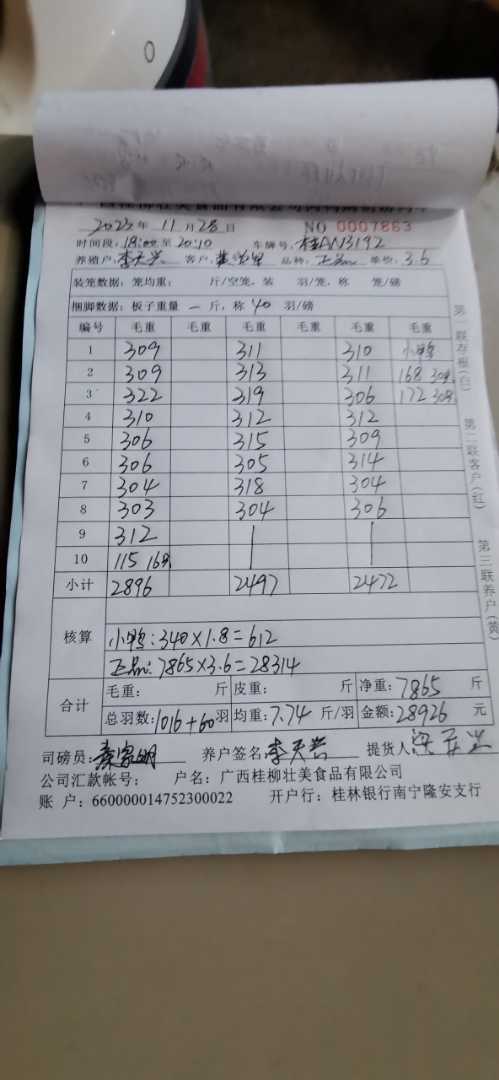 2023年 11月28日 NO 0007863
时间段:18:00至20:10 车牌号:桂AN3192
养殖户:李天兴 客户: 品种:正品 单价:3.6
装笼数据: 笼均重: 斤/空笼, 装 羽/笼, 称 笼/磅
捆脚数据: 板子重量 一 斤, 称 40 羽/磅
编号 毛重 毛重 毛重 毛重 毛重 毛重
1 309 311 310 小鸭
2 309 313 311 168 30只
3 322 319 306 172 30只
4 310 312 312
5 306 315 309
6 306 305 314
7 304 318 304
8 303 304 306
9 312
10 115 16只
小计 2896 2497 2472
核算 小鸭:340×1.8=612
正品:7865×3.6=28314
合计 毛重: 斤 皮重: 斤 净重:7865 斤
总羽数:1016+60羽 均重:7.74 斤/羽 金额:28926 元
司磅员: 养户签名:李天兴 提货人
公司汇款帐号: 户名:广西桂柳壮美食品有限公司
账 户:660000014752300022 开户行:桂林银行南宁隆安支行
第一联存根(白)
第二联客户(红)
第三联养户(黄)